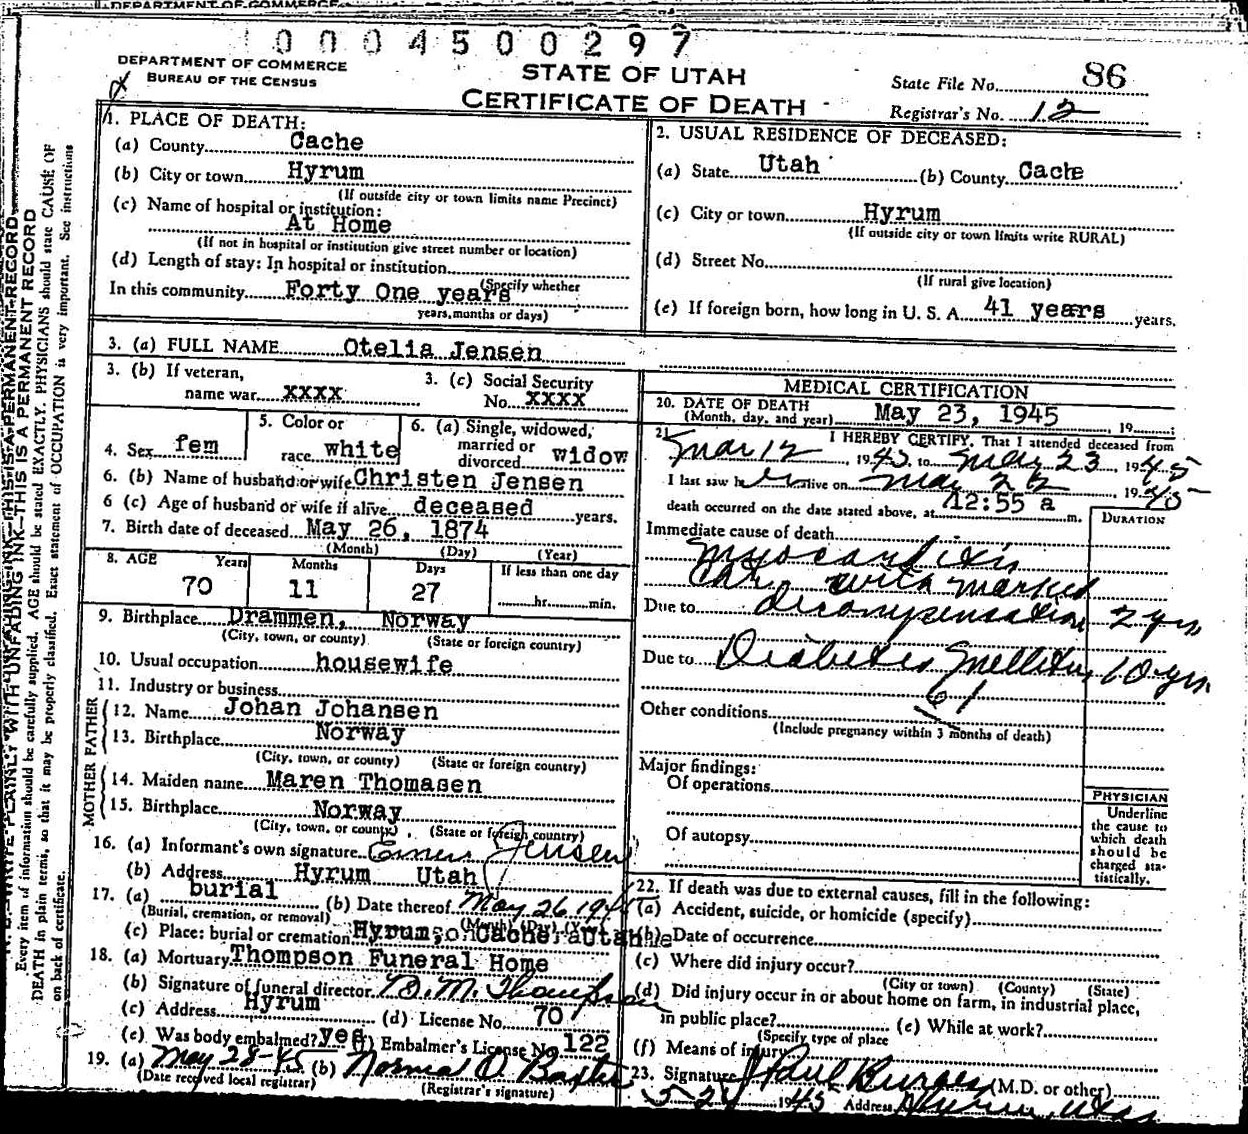 DEPARTMENT OF COMMERCE
0004500297
DEPARTMENT OF COMMERCE
BUREAU OF THE CENSUS
STATE OF UTAH
CERTIFICATE OF DEATH
State File No. 86
Registrar's No. 12
1. PLACE OF DEATH:
(a) County Cache
(b) City or town Hyrum
(If outside city or town limits name Precinct)
(c) Name of hospital or institution:
At Home
(If not in hospital or institution give street number or location)
(d) Length of stay: In hospital or institution
(Specify whether
In this community Forty One years
years, months or days)
2. USUAL RESIDENCE OF DECEASED:
(a) State Utah (b) County Cache
(c) City or town Hyrum
(If outside city or town limits write RURAL)
(d) Street No.
(If rural give location)
(e) If foreign born, how long in U. S. A. 41 years years.
3. (a) FULL NAME Otelia Jensen
3. (b) If veteran,
name war XXXX
3. (c) Social Security
No. XXXX
4. Sex fem
5. Color or
race white
6. (a) Single, widowed,
married or
divorced widow
6. (b) Name of husband or wife Christen Jensen
6 (c) Age of husband or wife if alive deceased years.
7. Birth date of deceased May 26, 1874
(Month) (Day) (Year)
8. AGE Years Months Days If less than one day
70 11 27 hr. min.
9. Birthplace Drammen, Norway
(City, town, or county) (State or foreign country)
10. Usual occupation housewife
11. Industry or business
FATHER
12. Name Johan Johansen
13. Birthplace Norway
(City, town, or county) (State or foreign country)
MOTHER
14. Maiden name Maren Thomasen
15. Birthplace Norway
(City, town, or county) (State or foreign country)
16. (a) Informant's own signature Jensen
(b) Address Hyrum Utah
17. (a) burial (b) Date thereof May 26 194
(Burial, cremation, or removal) (Month) (Day) (Year)
(c) Place: burial or cremation Hyrum, Cache Utah
18. (a) Mortuary Thompson Funeral Home
(b) Signature of funeral director D. M. Thompson
(c) Address Hyrum (d) License No. 70
(e) Was body embalmed? yes (f) Embalmer's License No. 122
19. (a) May 28-45 (b) Norma O Baxter
(Date received local registrar) (Registrar's signature)
MEDICAL CERTIFICATION
20. DATE OF DEATH
(Month, day, and year) May 23, 1945 19
21. I HEREBY CERTIFY, That I attended deceased from
Mar 12 1945 to May 23 1945
I last saw her alive on May 22 1945
death occurred on the date stated above, at 12:55 a m.
DURATION
Immediate cause of death
Myocarditis
with marked
Due to decompensation 2 yrs
Due to Diabetes Mellitus 10 yrs
61
Other conditions
(Include pregnancy within 3 months of death)
Major findings:
Of operations
Of autopsy
PHYSICIAN
Underline
the cause to
which death
should be
charged sta-
tistically.
22. If death was due to external causes, fill in the following:
(a) Accident, suicide, or homicide (specify)
(b) Date of occurrence
(c) Where did injury occur?
(City or town) (County) (State)
(d) Did injury occur in or about home on farm, in industrial place,
in public place? (e) While at work?
(Specify type of place
(f) Means of injury
23. Signature J Paul Burgess (M.D. or other)
1945 Address Hyrum, Utah
N. B.—WRITE PLAINLY WITH UNFADING INK—THIS IS A PERMANENT RECORD
Every item of information should be carefully supplied. AGE should be stated EXACTLY. PHYSICIANS should state CAUSE OF
DEATH in plain terms, so that it may be properly classified. Exact statement of OCCUPATION is very important. See instructions
on back of certificate.